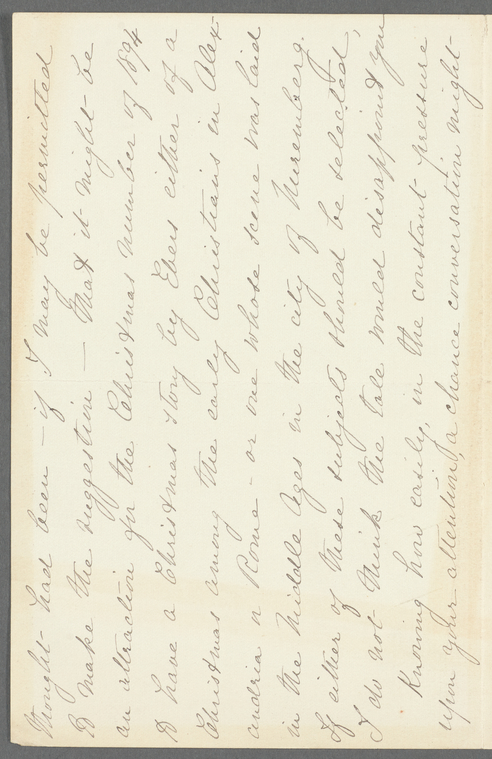 thought had been — if I may be permitted
to make the suggestion — that it might be
an attraction for the Christmas number of 1894
to have a Christmas story by Ebers either of a
Christmas among the early Christians in Alex-
andria or Rome — or one whose scene was laid
in the Middle Ages in the city of Nuremberg.
If either of these subjects should be selected,
I do not think the tale would disappoint you
Knowing how easily, in the constant pressure
upon your attention, a chance conversation might